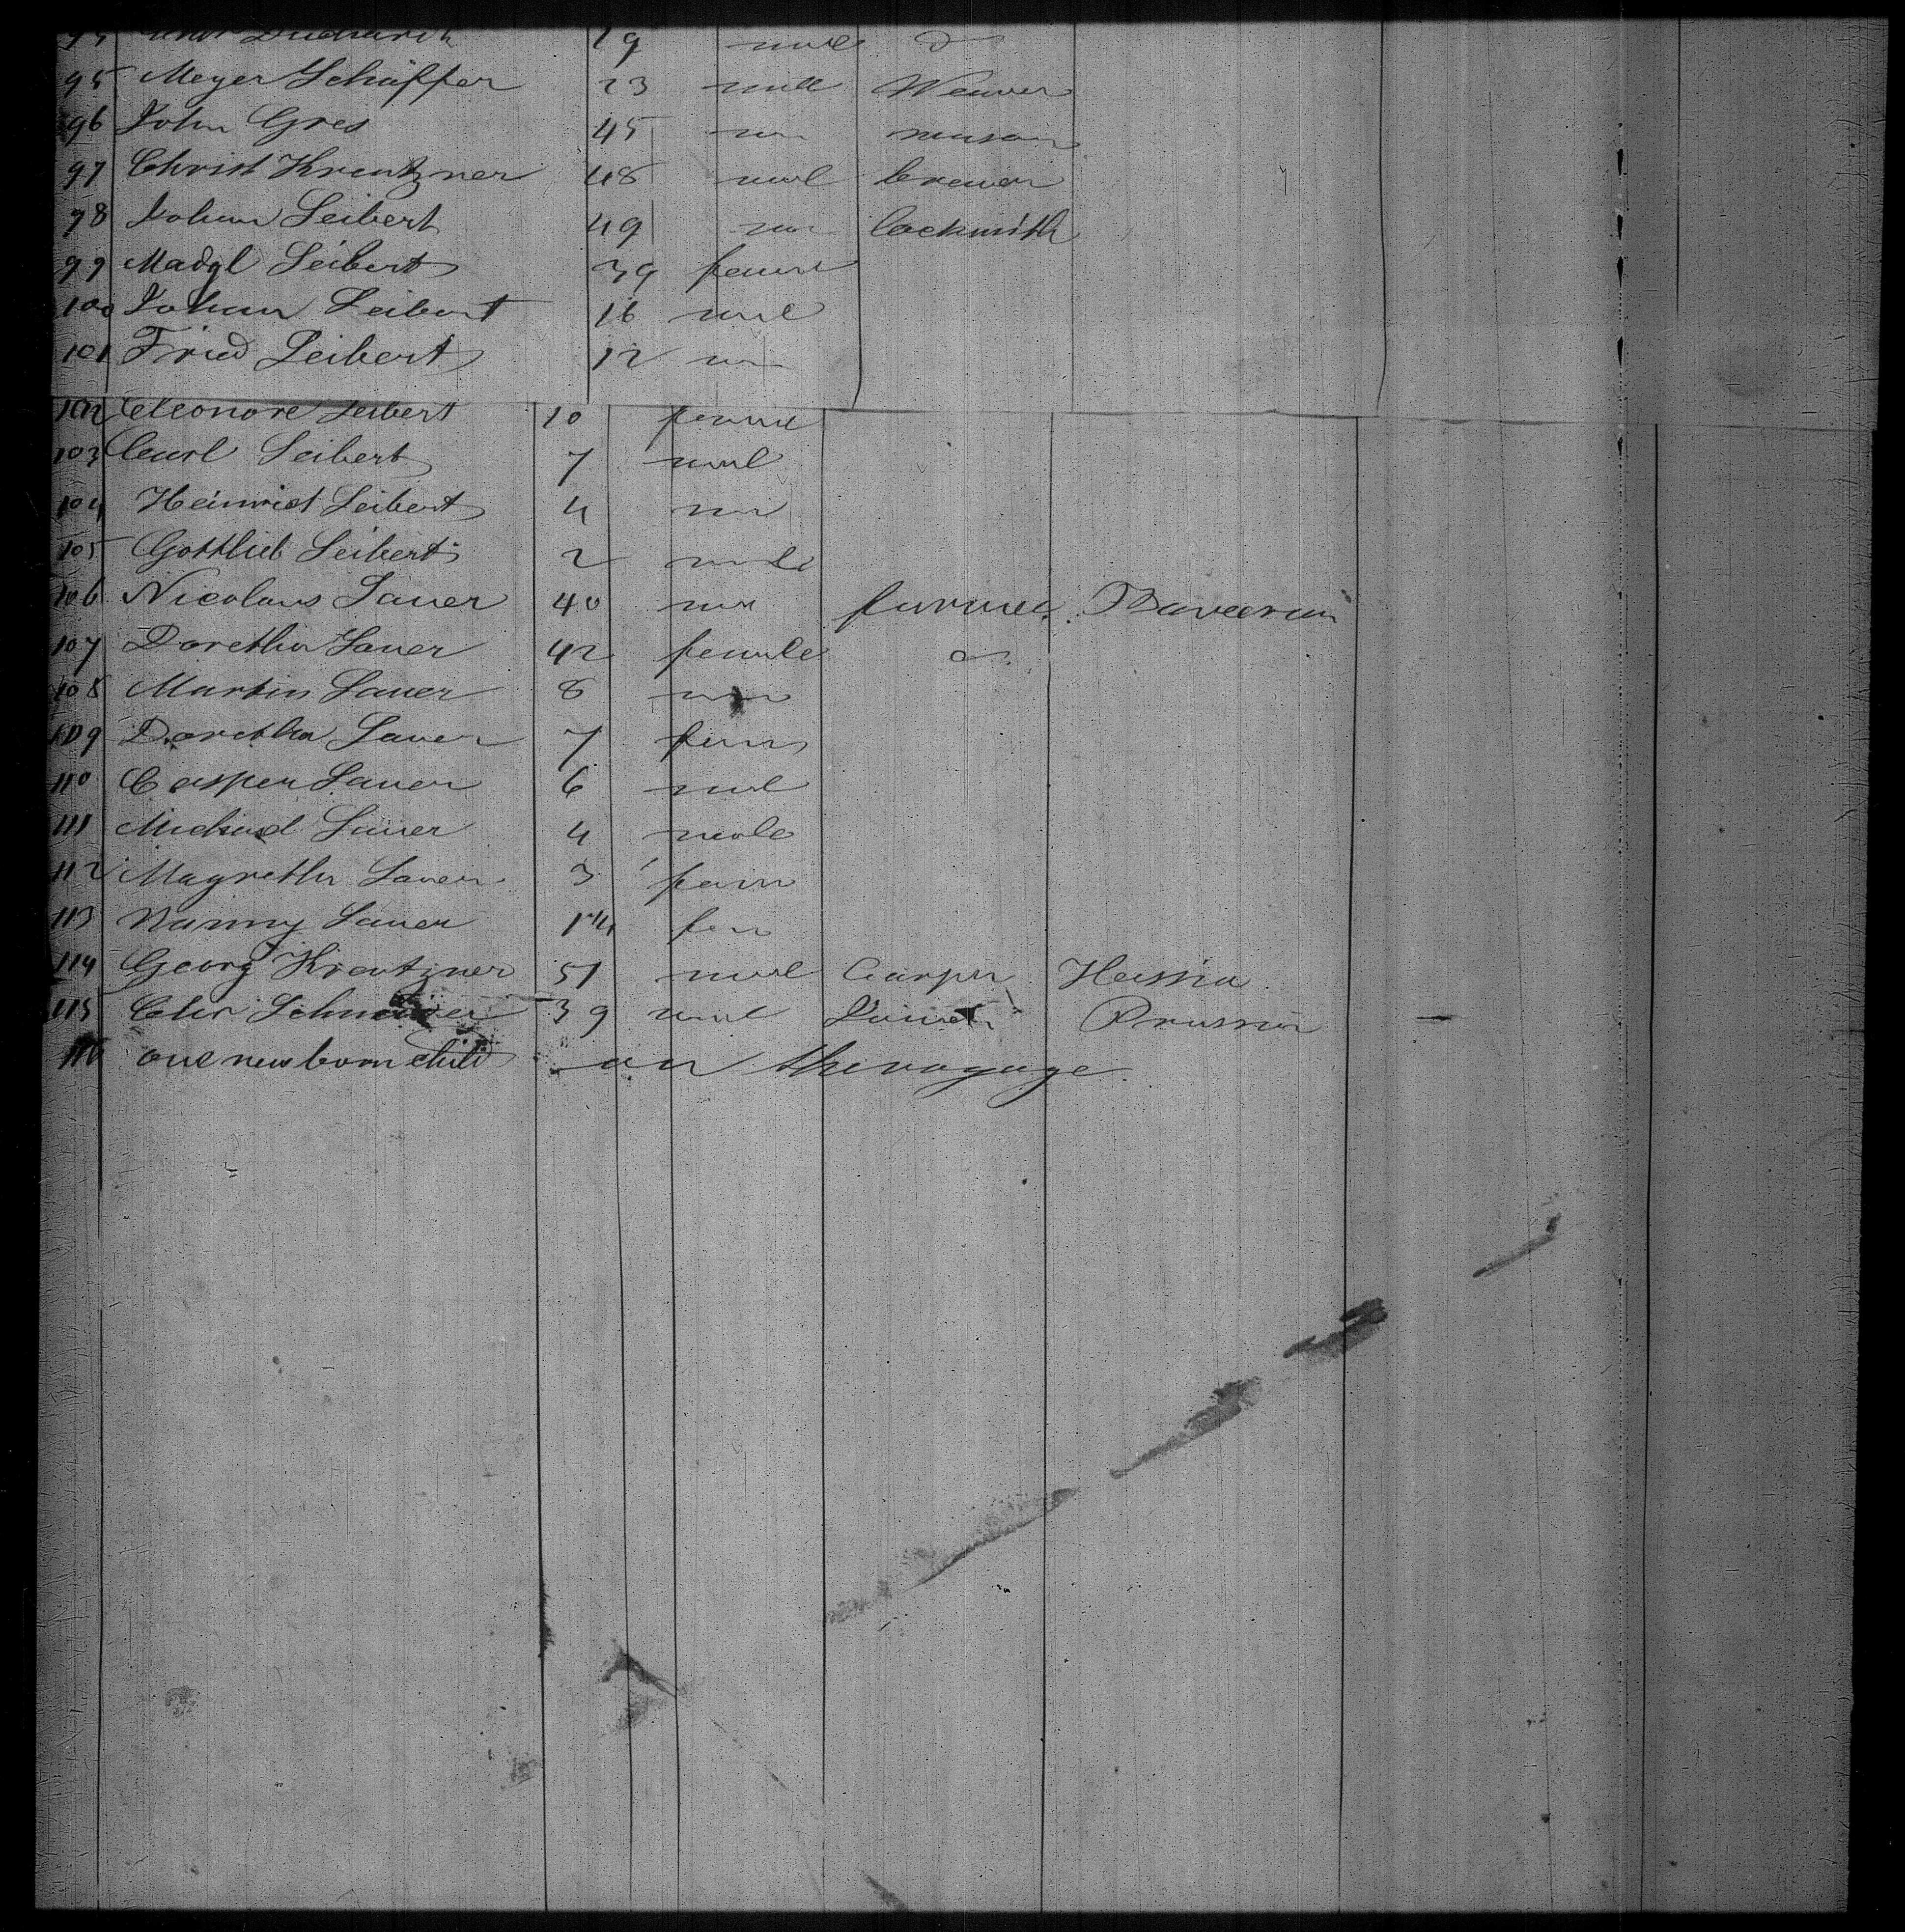 19 male do
95 Meyer Schäffer 23 male Weaver
96 John Gres 45 m mason
97 Christ Kreutzner 48 mal brewer
98 Johan Seibert 49 m lockmith
99 Madgl Seibert 39 femal
100 Johan Seibert 16 mal
101 Fried Seibert 12 m
102 Eleonore Seibert 10 femal
103 Carl Seibert 7 mal
104 Heinrich Seibert 4 m
105 Gottlieb Seibert 2 male
106 Nicolaus Sauer 40 mal farmer Baveria
107 Doretha Sauer 42 female do
108 Martin Sauer 8 m
109 Doretha Sauer 7 fem
110 Casper Sauer 6 mal
111 Michael Sauer 4 male
112 Magretha Sauer 3 fem
113 Nanny Sauer 1 fem
114 Georg Kreutzner 51 mal Carper Hessia
115 Chr Schneider 39 mal Prussia —
116 one new born child on the vogage